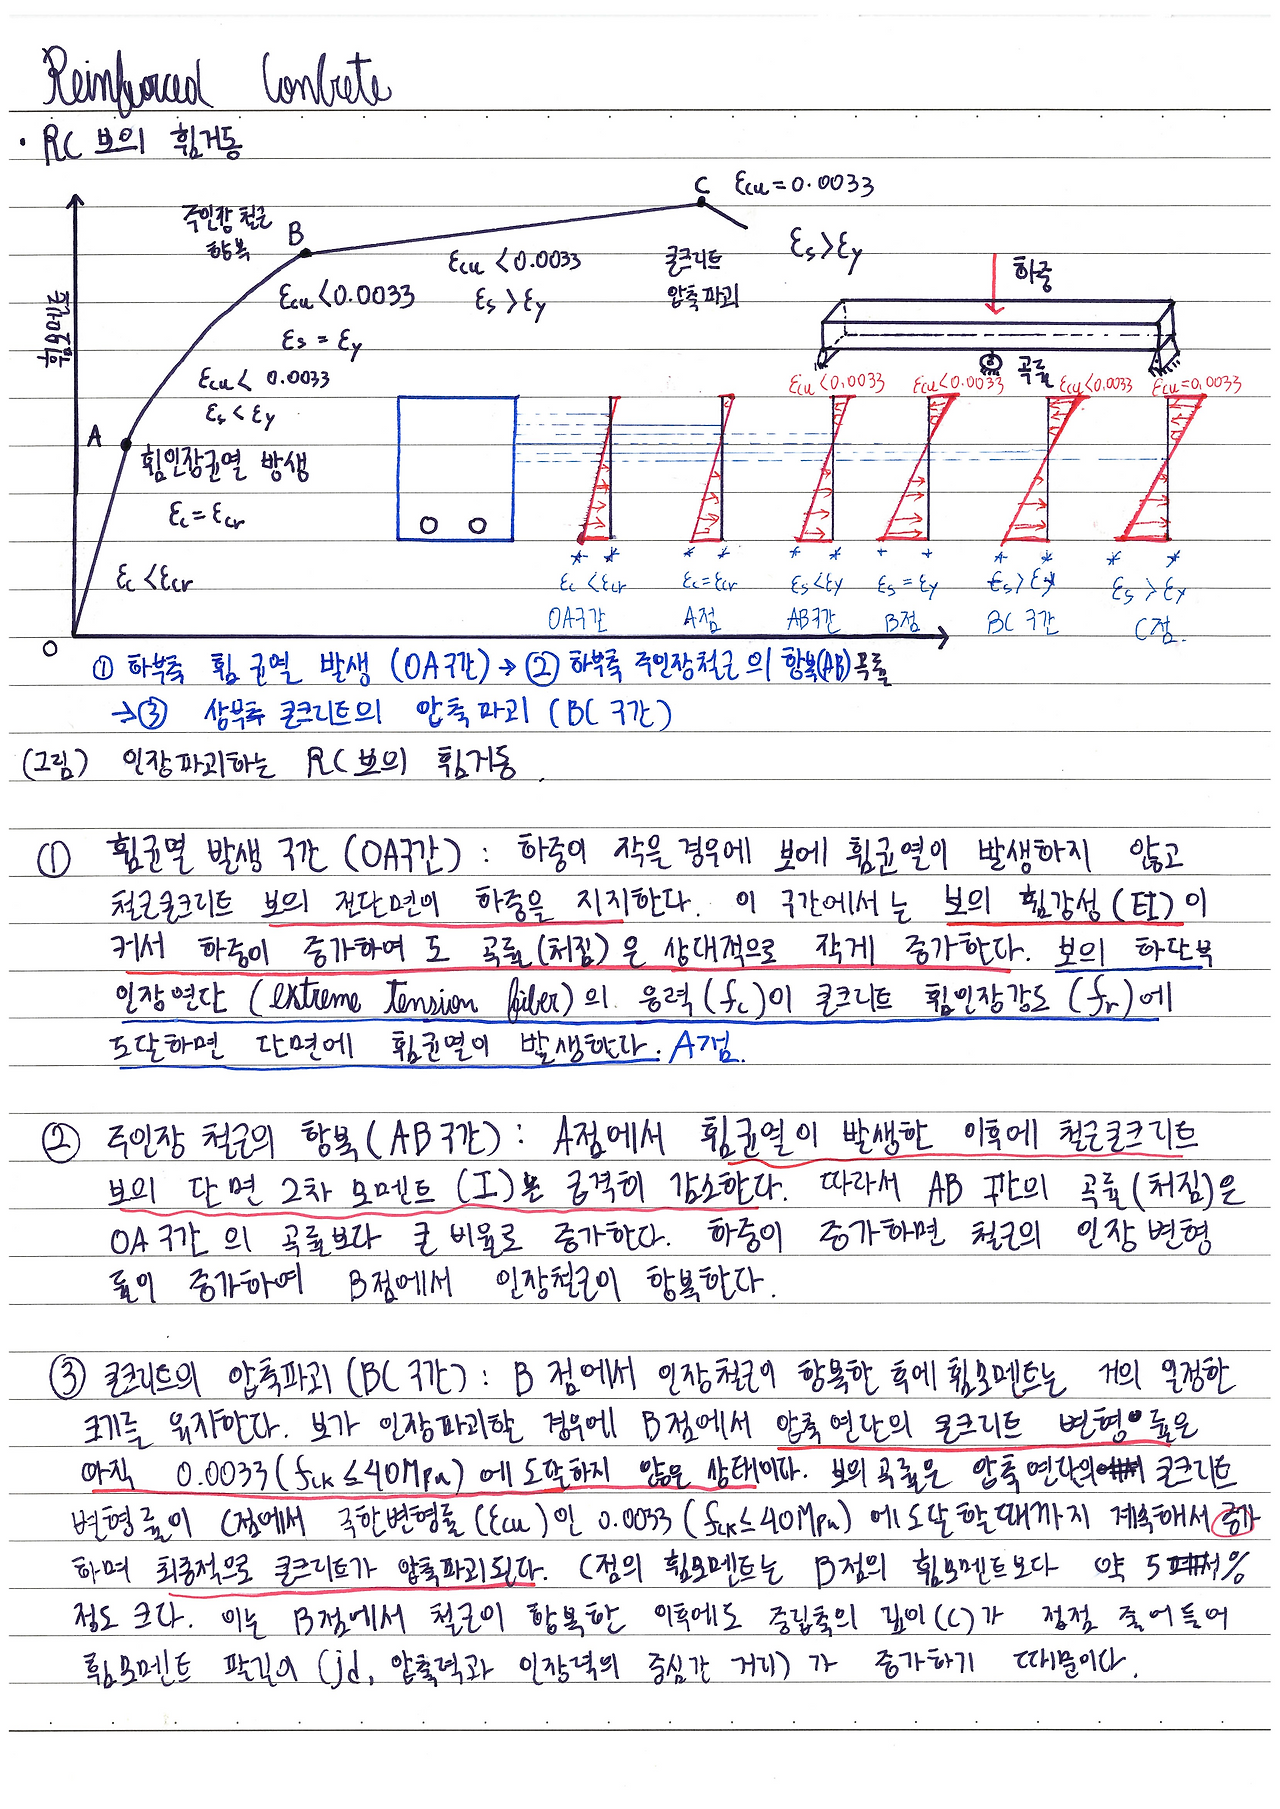 Reinforced Concrete
· RC 보의 휨거동
C εcu = 0.0033
주인장 철근
항복
B
εs > εy
εcu < 0.0033
εs > εy
콘크리트
압축파괴
하중
휨모멘트
εcu < 0.0033
εs = εy
곡률
εcu < 0.0033
εs < εy
εcu < 0.0033 εcu < 0.0033 εcu < 0.0033 εcu = 0.0033
A
휨인장균열 발생
εc = εcr
εc < εcr
εc < εcr εc = εcr εs < εy εs = εy εs > εy εs > εy
OA구간 A점 AB구간 B점 BC 구간 C점.
O
① 하부측 휨 균열 발생 (OA구간) → ② 하부측 주인장철근의 항복(AB) 곡률
→ ③ 상부측 콘크리트의 압축파괴 (BC 구간)
(그림) 인장파괴하는 RC보의 휨거동.
① 휨균열 발생 구간 (OA구간) : 하중이 작은 경우에 보에 휨균열이 발생하지 않고
철근콘크리트 보의 전단면이 하중을 지지한다. 이 구간에서는 보의 휨강성(EI)이
커서 하중이 증가하여도 곡률(처짐)은 상대적으로 작게 증가한다. 보의 하단부
인장연단 (extreme tension fiber)의 응력(fc)이 콘크리트 휨인장강도(fr)에
도달하면 단면에 휨균열이 발생한다. A점.
② 주인장 철근의 항복(AB구간) : A점에서 휨균열이 발생한 이후에 철근콘크리트
보의 단면 2차 모멘트(I)는 급격히 감소한다. 따라서 AB 구간의 곡률(처짐)은
OA구간의 곡률보다 큰 비율로 증가한다. 하중이 증가하면 철근의 인장 변형
률이 증가하여 B점에서 인장철근이 항복한다.
③ 콘크리트의 압축파괴 (BC구간) : B점에서 인장철근이 항복한 후에 휨모멘트는 거의 일정한
크기를 유지한다. 보가 인장파괴할 경우에 B점에서 압축연단의 콘크리트 변형률은
아직 0.0033(fck ≤ 40Mpa)에 도달하지 않은 상태이다. 보의 곡률은 압축연단의 콘크리트
변형률이 C점에서 극한변형률(εcu)인 0.0033 (fck ≤ 40Mpa)에 도달할때까지 계속해서 증가
하며 최종적으로 콘크리트가 압축파괴된다. C점의 휨모멘트는 B점의 휨모멘트보다 약 5%
정도 크다. 이는 B점에서 철근이 항복한 이후에도 중립축의 깊이(c)가 점점 줄어들어
휨모멘트 팔길이 (jd, 압축력과 인장력의 중심간 거리)가 증가하기 때문이다.